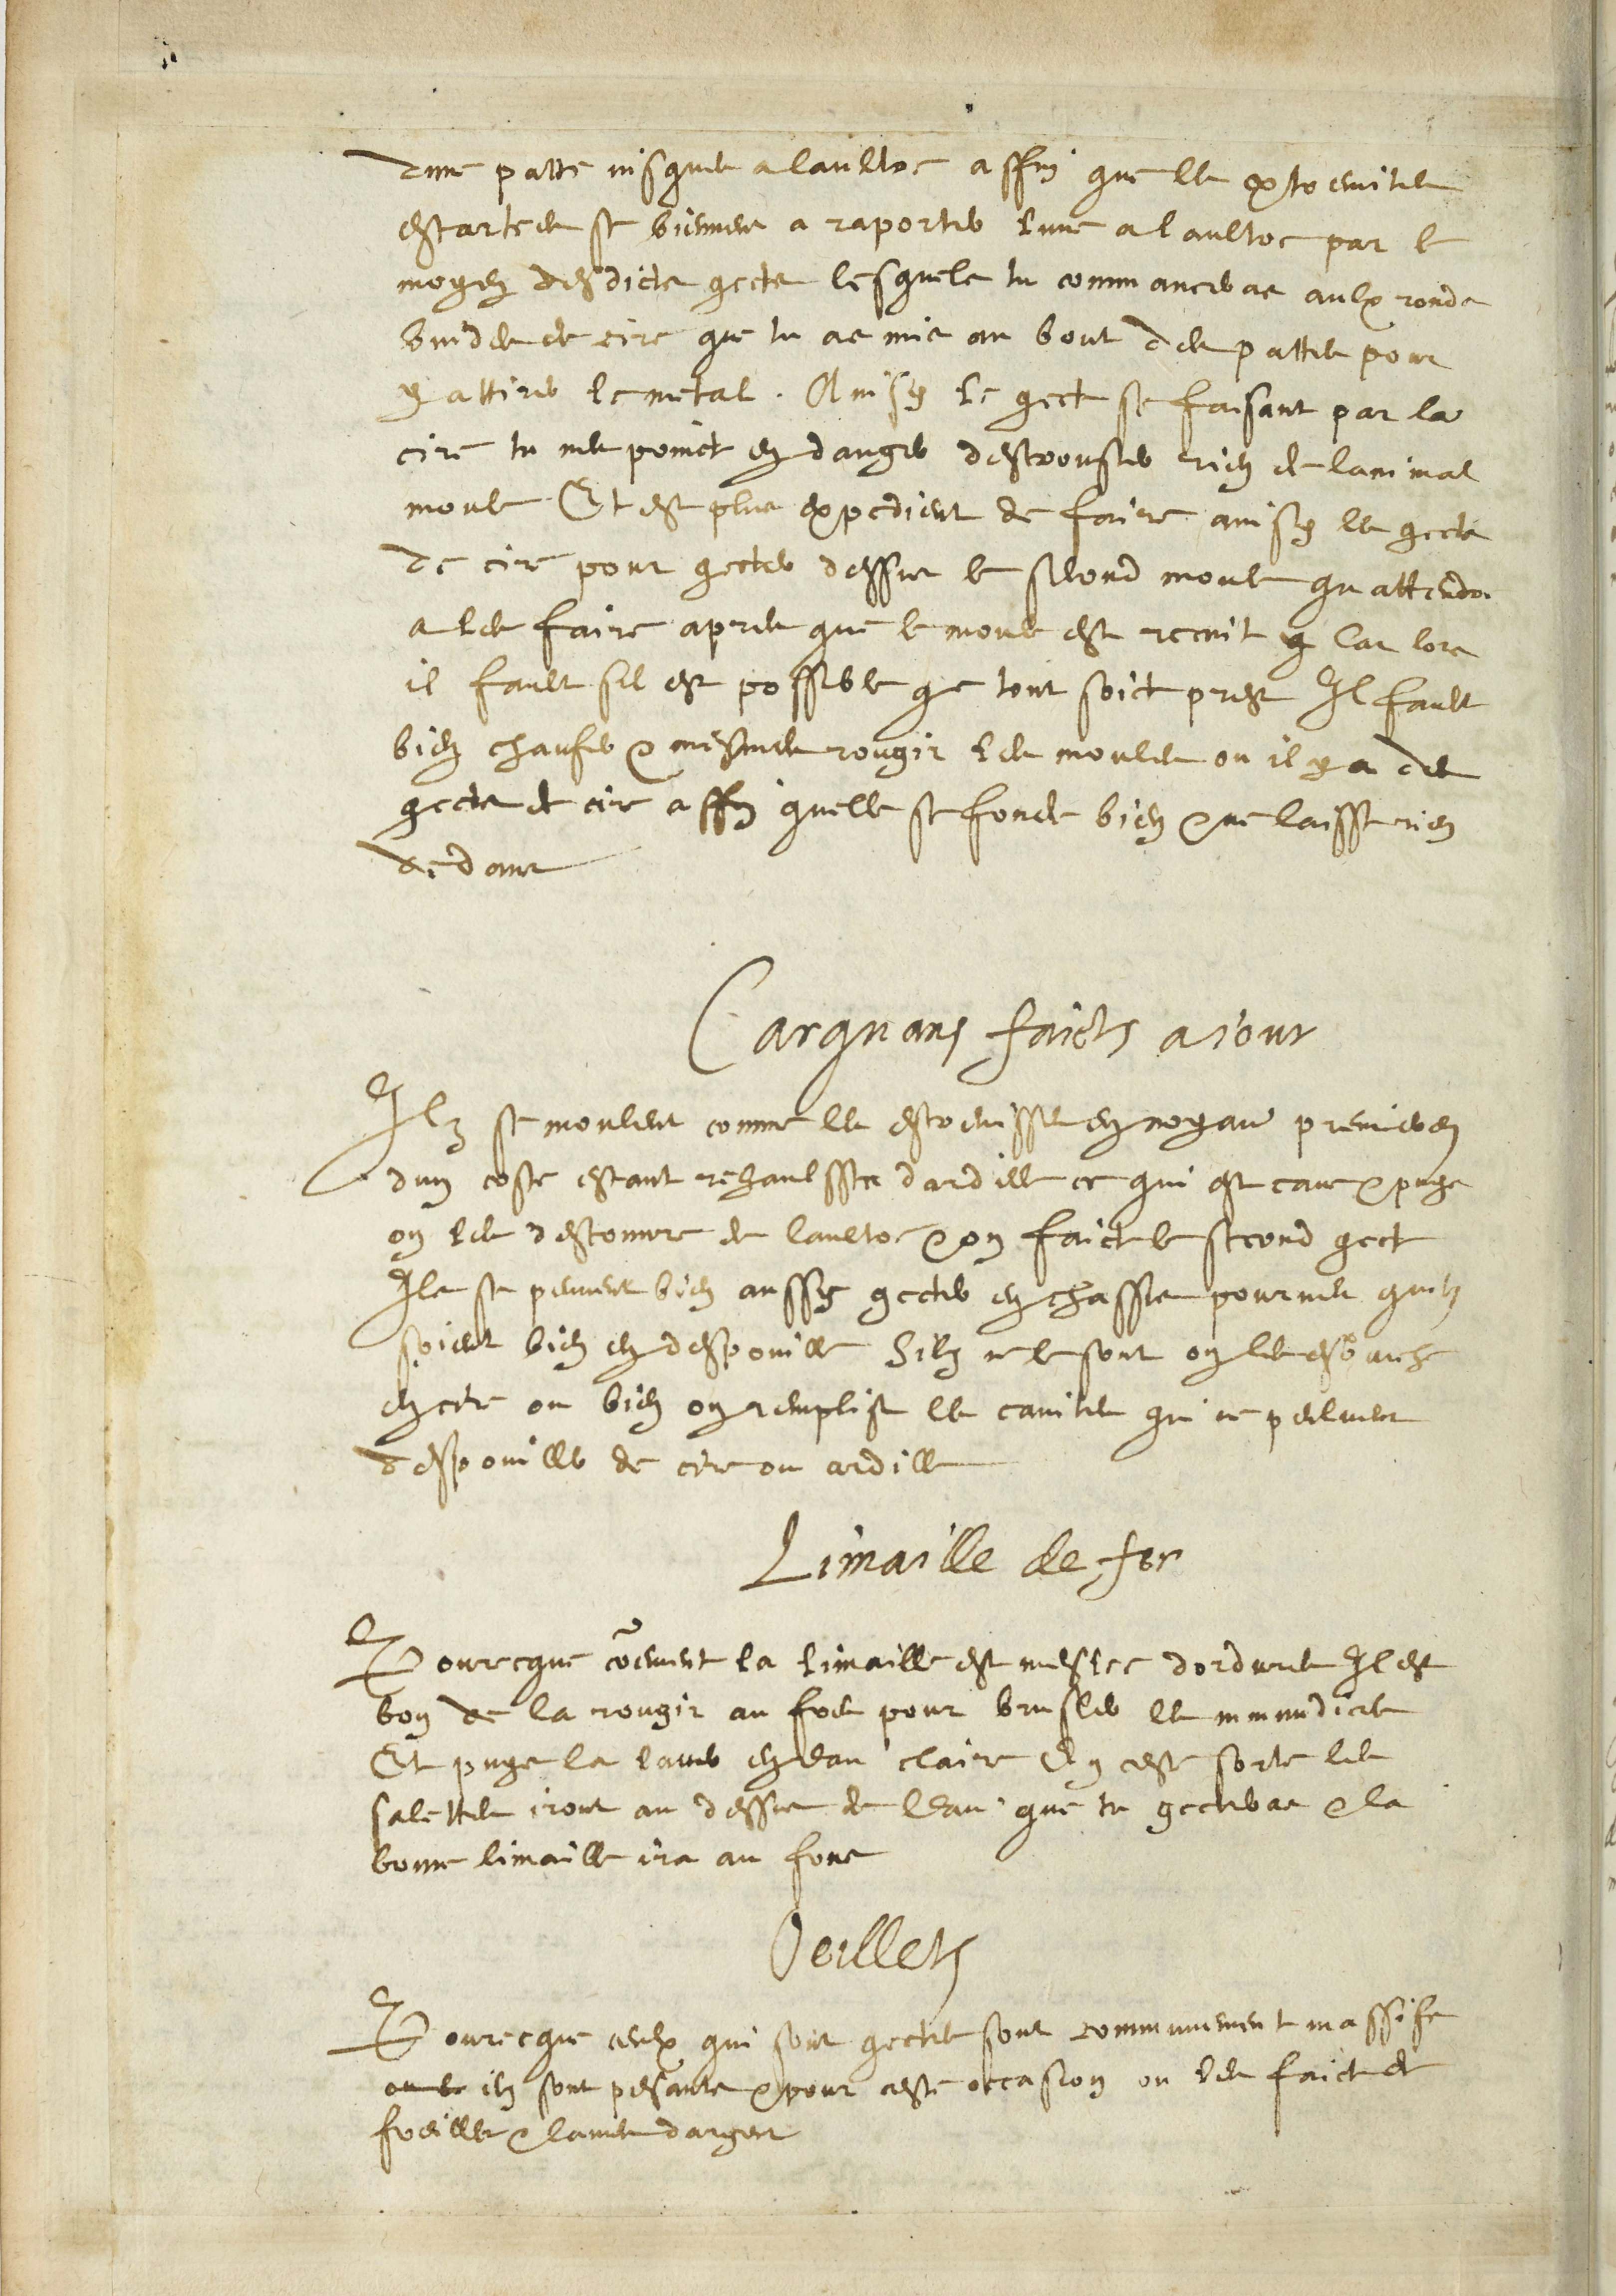 dune patte iusques a laultre affin que les extremites
escartees se viennent a raporter lune a laultre par le
moyen desdicts gects lesquels tu commanceras aulx ronds
vuides de cire que tu as mis au bout des pattes pour
y attirer le metal. Ainsy le gect se faisant par la
cire tu nes poinct en danger destrousser rien de lanimal
moule Et est plus expedient de faire ainsy les gects
de cire pour gecter dessus le second moule quattendre
a les faire apres que le moule est recuit y Car lors
il fault sil est possible que tout soict prest Il fault
bien chaufer & mesmes rougir les moules ou il y a des
gects de cire affin quelle se fonde bien & ne laisse rien
dedans
Carquans faicts a iour
Ilz se moulent comme les escrevisses en noyau premierem
dun coste estant rehaulsses dardille ce qui est cave & puys
on les descouvre de laultre & on faict le second gect
Ils se peuvent bien aussy gecter en chassis pourveu quilz
soient bien en despouille Silz ne le sont on les esbauche
en cire ou bien on remplist les cavites qui ne peuvent
despouiller de cire ou ardille
Limaille de fer
Pourceque coement la limaille est meslee dordures Il est
bon de la rougir au foeu pour brusler les immundices
Et puys la laver en eau claire En ceste sorte les
salettes iront au dessus de leau que tu gecteras & la
bonne limaille ira au fons
Oeillets
Pourceque ceulx qui sont gectes sont communement massifs
ilz sont pesants & pour ceste occasion on les faict de
foeilles & lames dargent